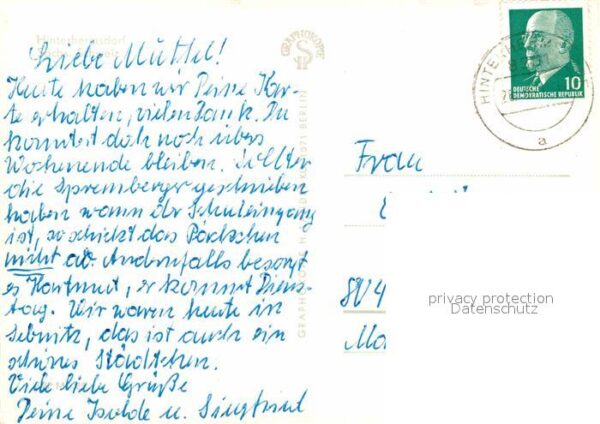 Hinterhermsdorf
Liebe Muttel!
Heute haben wir Deine Kar-
te erhalten, vielen Dank. Du
konntest doch noch übers
Wochenende bleiben. Sollten
die Spremberger geschrieben
haben wann ihr Schuleingang
ist, so schickt das Päckchen
nicht ab. Andernfalls besorgt
es Hartmut, er kommt Diens-
tag. Wir waren heute in
Sebnitz, das ist auch ein
schönes Städtchen.
Viele liebe Grüße
Deine Isolde u. Siegfried
GRAPHOKOPIE
1071 BERLIN
HINTERHE
a
10
DEUTSCHE
DEMOKRATISCHE REPUBLIK
Frau
804
Ma
privacy protection
Datenschutz